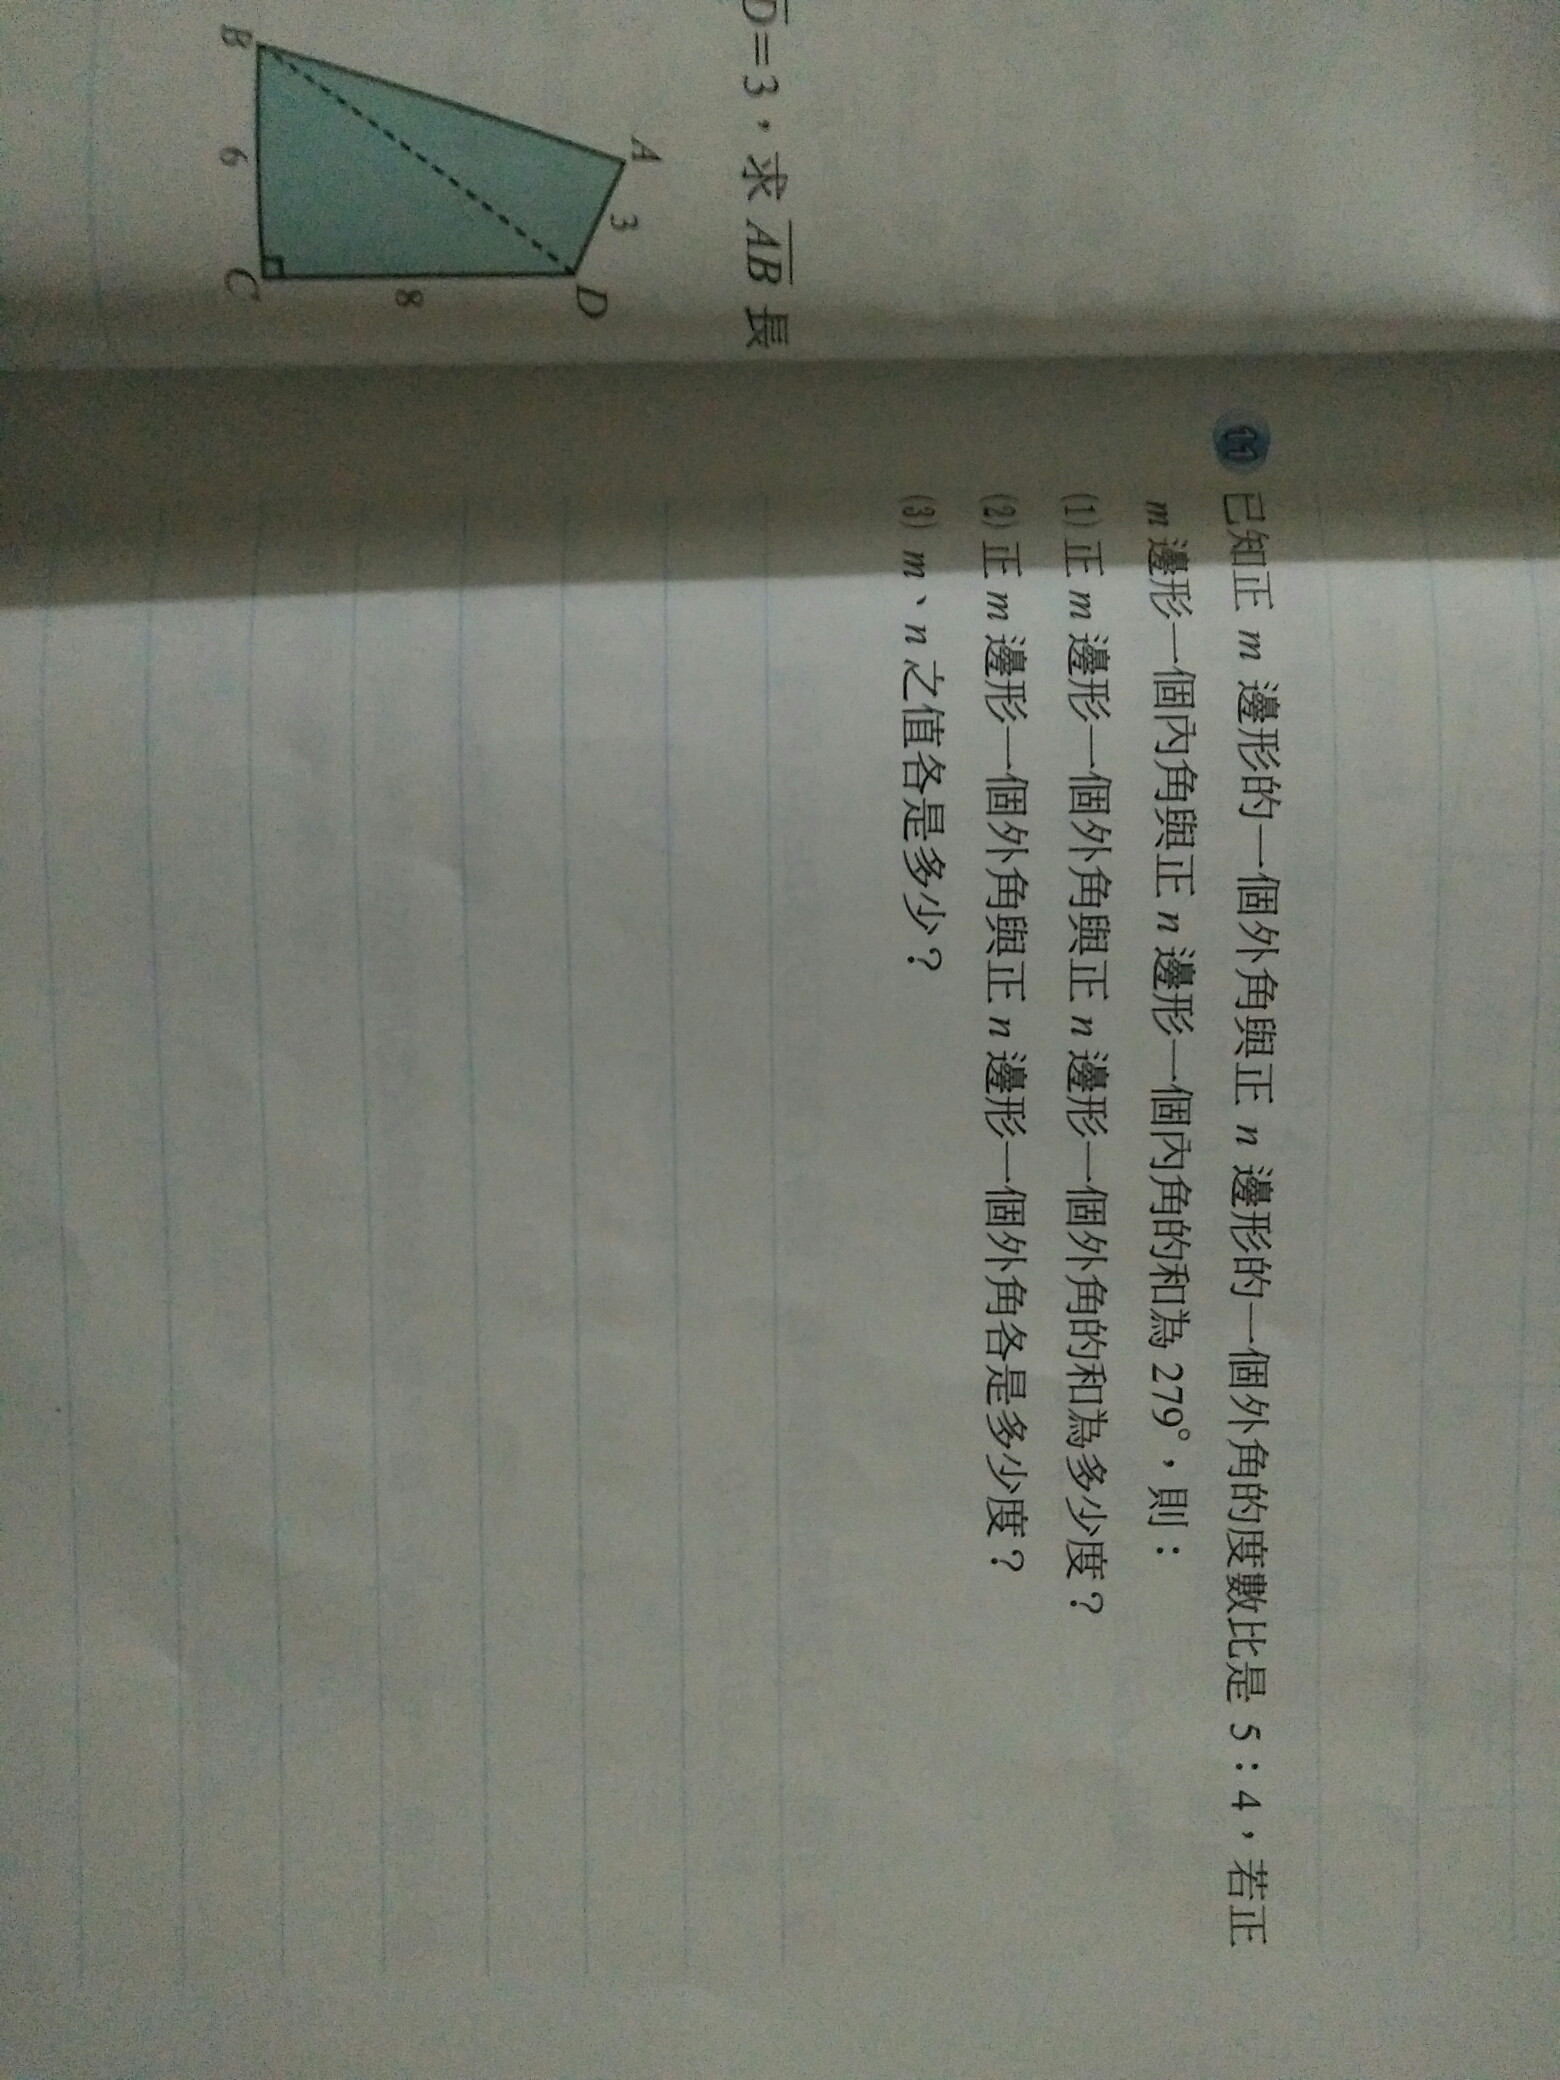 D=3，求 AB 長
A
3
D
B
6
C
8
11 已知正 m 邊形的一個外角與正 n 邊形的一個外角的度數比是 5：4，若正
m 邊形一個內角與正 n 邊形一個內角的和為 279°，則：
(1) 正 m 邊形一個外角與正 n 邊形一個外角的和為多少度？
(2) 正 m 邊形一個外角與正 n 邊形一個外角各是多少度？
(3) m、n 之值各是多少？